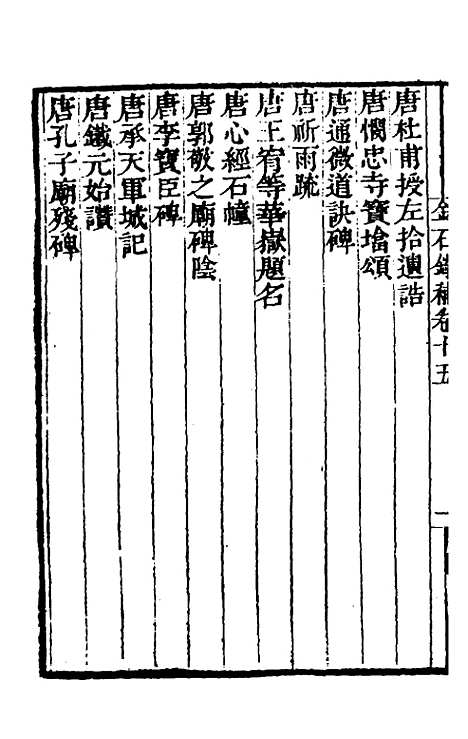 唐杜甫授左拾遺誥
唐憫忠寺寶墖頌
唐通微道訣碑
唐祈雨䟽
唐王宥等華嶽題名
唐心經石幢
唐郭敬之廟碑陰
唐李寶臣碑
唐承天軍城記
唐鐵元始讃
唐孔子廟殘碑
金石錄補卷十五
一